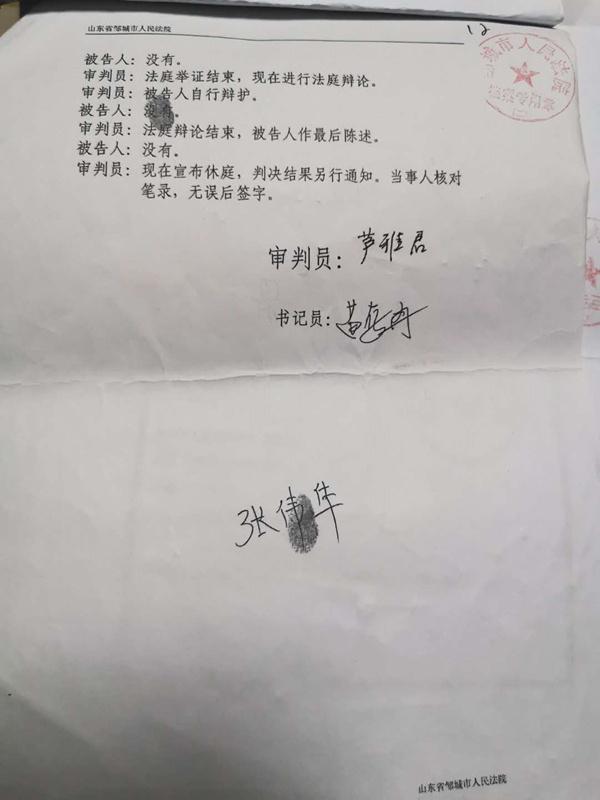 山东省邹城市人民法院
12
城市人民法院
被告人：没有。
审判员：法庭举证结束，现在进行法庭辩论。
审判员：被告人自行辩护。
被告人：没有。
审判员：法庭辩论结束，被告人作最后陈述。
被告人：没有。
审判员：现在宣布休庭，判决结果另行通知。当事人核对
笔录，无误后签字。
审判员：芦雅君
书记员：
张伟华
山东省邹城市人民法院